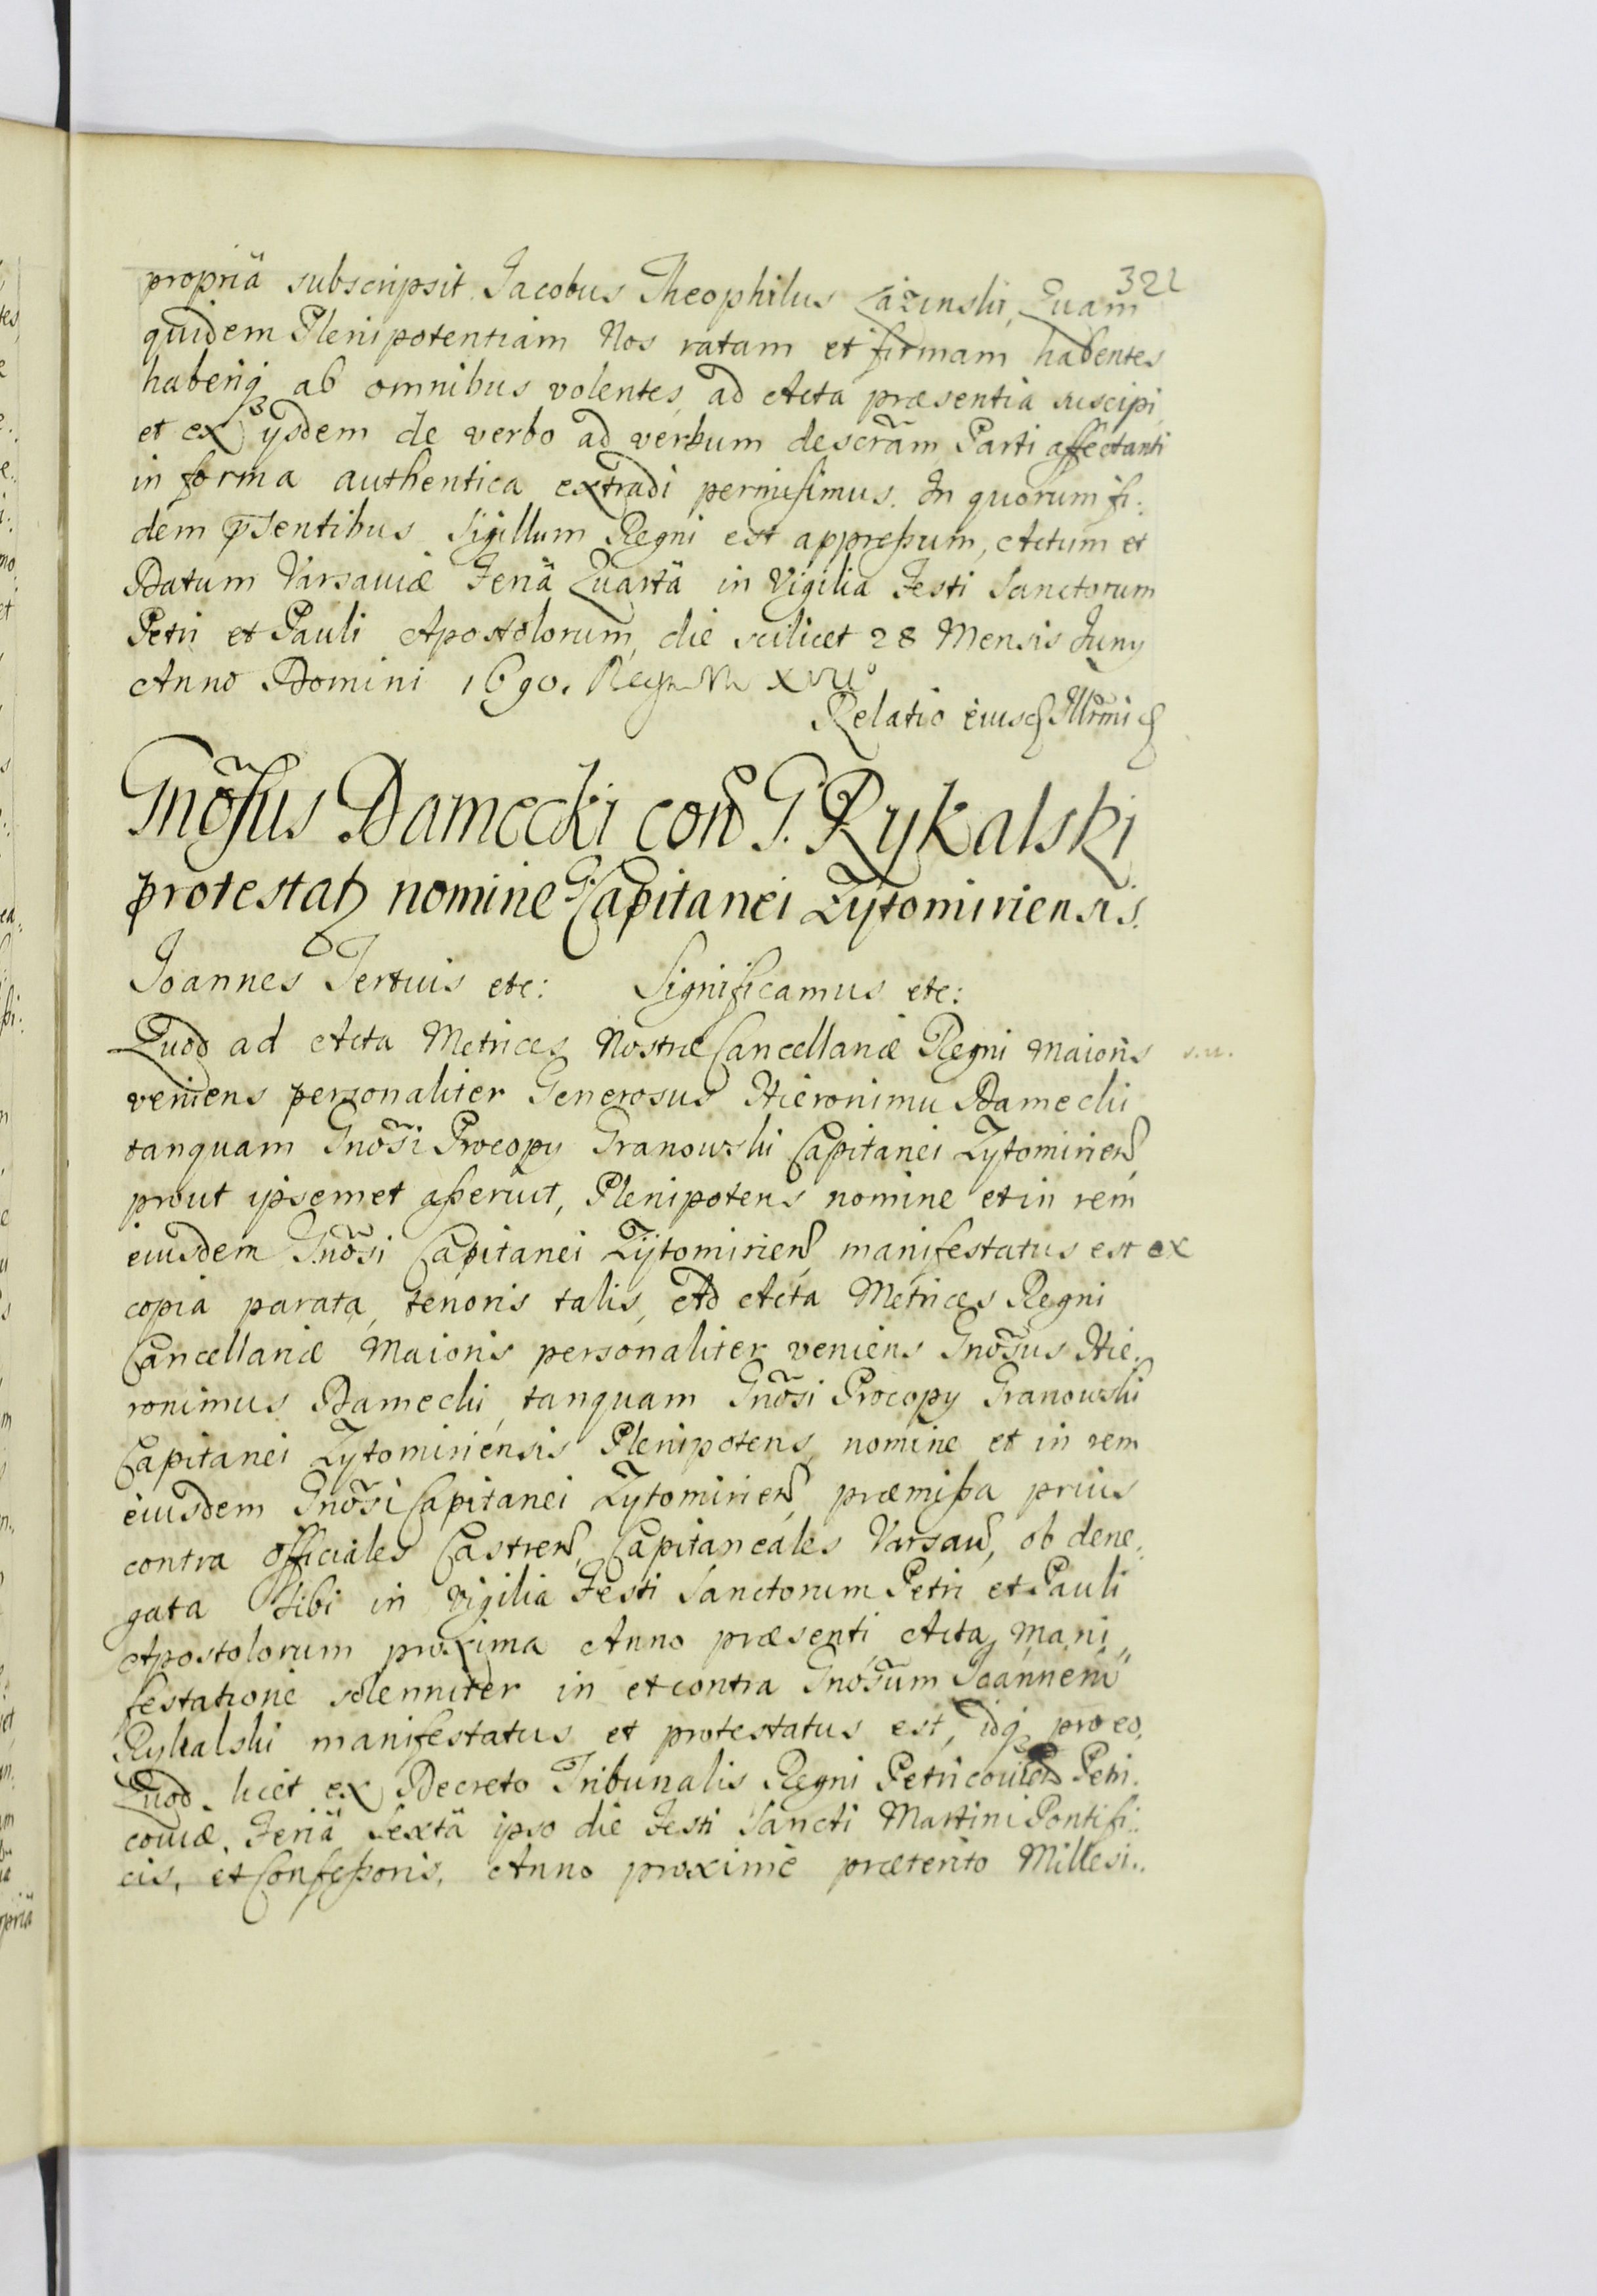 321
propriâ subscripsit Jacobus Theophilus Łazinski, Quam
quidem Plenipotentiam Nos ratam et firmam habentes
haberiq3 ab omnibus volentes, ad Acta præsentia suscipi,
et ex ijsdem de verbo ad verbum descrãm Parti affectanti
in forma authentica extradi permisimus. In quorum fi:
dem p̃sentibus Sigillum Regni est appreßum, Actum et
Datum Varsaviæ Feriâ Quartâ in Vigilia Festi Sanctorum
Petri et Pauli Apostolorum, die scilicet 28 Mensis Juny
Anno Domini 1690. Regn. Nri XVII°
Relatio eiusd Illrmi
Gnõsus Damecki con G. Rykalski
protestat nomine G. Capitanei Zytomiriensis.
Joannes Tertuis etc: Significamus etc:
Quod ad Acta Metrices Nostræ Cancellariæ Regni Maioris
veniens personaliter Generosus Hieronimu Damecki
tanquam Gnõsi Procopy Granowski Capitanei Zytomirien
prout ipsemet aßeruit, Plenipotens nomine et in rem
eiusdem Gnõsi Capitanei Zÿtomirien, manifestatus est ex
copia parata, tenoris talis, Ad Acta Metrices Regni
Cancellariæ Maioris personaliter veniens Gnõsus Hie:
ronimus Damecki, tanquam Gnõsi Procopy Granowski
Capitanei Zytomiriensis Plenipotens, nomine et in rem
eiusdem Gnõsi Capitanei Zytomirien, præmißa prius
contra Officiales Castren, Capitaneales Varsav, ob dene:
gata Sibi in Vigilia Festi Sanctorum Petri et Pauli
Apostolorum proxima Anno præsenti Acta, Mani
festatione solenniter in et contra Gnõsum Joannem
Rykalski manifestatus et protestatus est, idq3 pro eo,
Quod licet ex Decreto Tribunalis Regni Petricovien Petri:
coviæ, Feriâ Sextâ ipso die Festi Sancti Martini Pontifi:
cis, et Confeßoris, Anno proxime præterito Millesi: